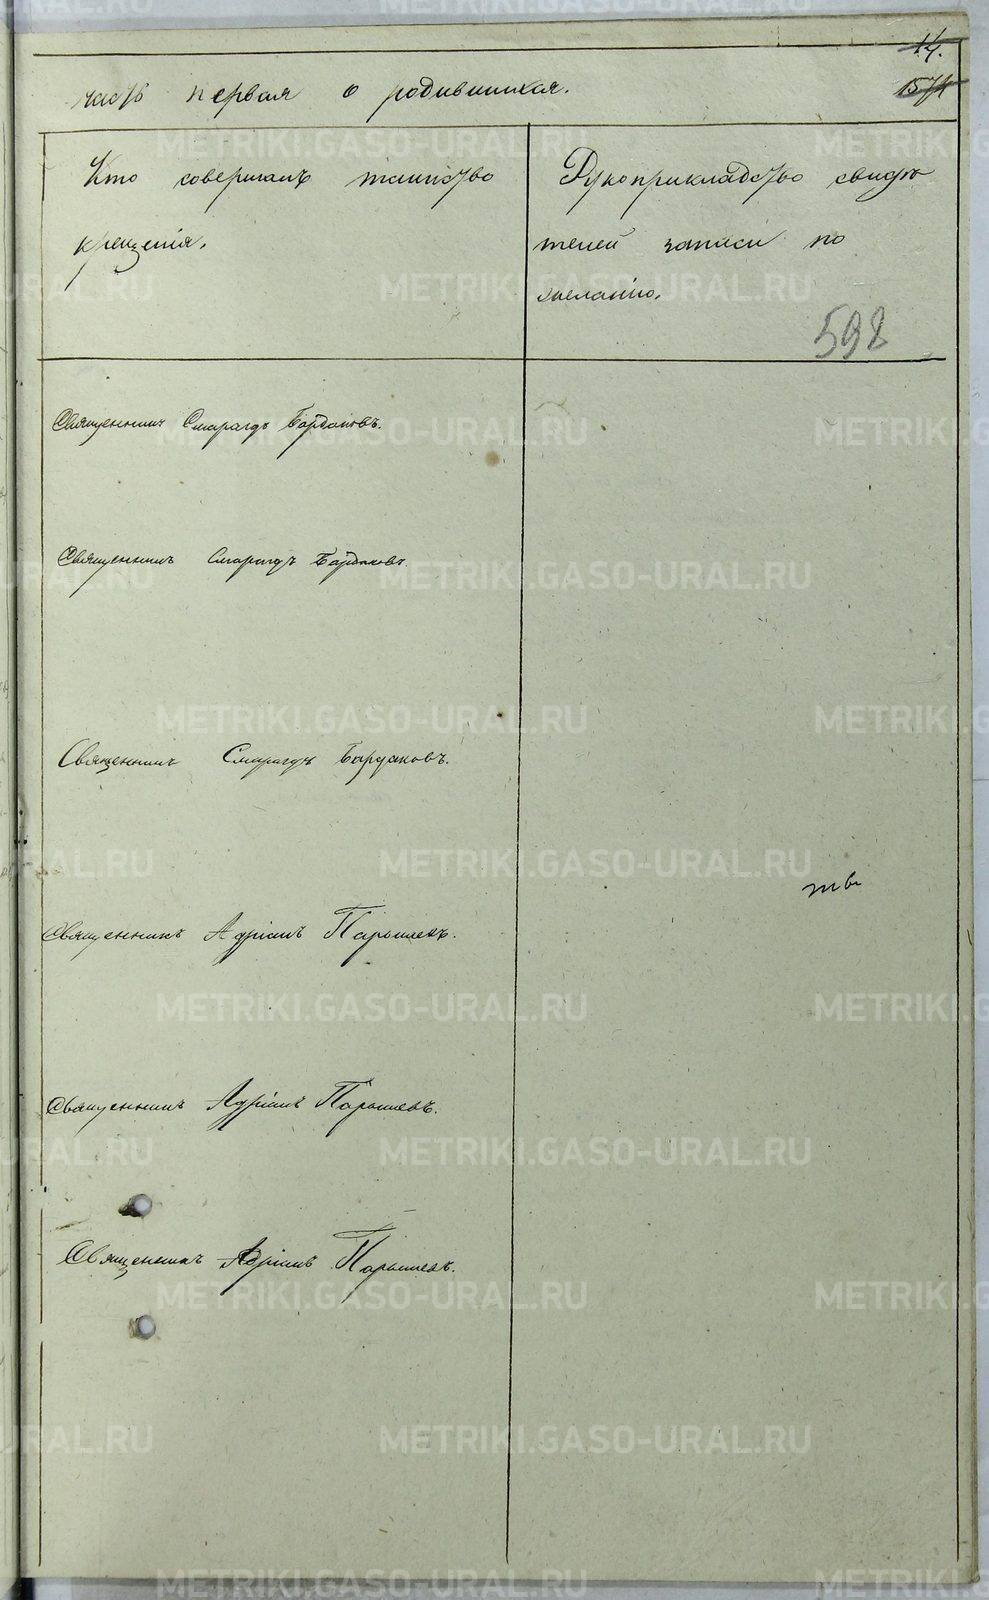 14.
часть первая о родившихся.
Кто совершалъ таинство
крещенія.
Рукоприкладство свидѣ
телей записи по
желанію.
598
Священникъ Смарагдъ Бардаковъ.
Священникъ Смарагдъ Бардаковъ.
Священникъ Смарагдъ Бардаковъ.
Священникъ Адріанъ Парышевъ.
Священникъ Адріанъ Парышевъ.
Священникъ Адріанъ Парышевъ.
METRIKI.GASO-URAL.RU